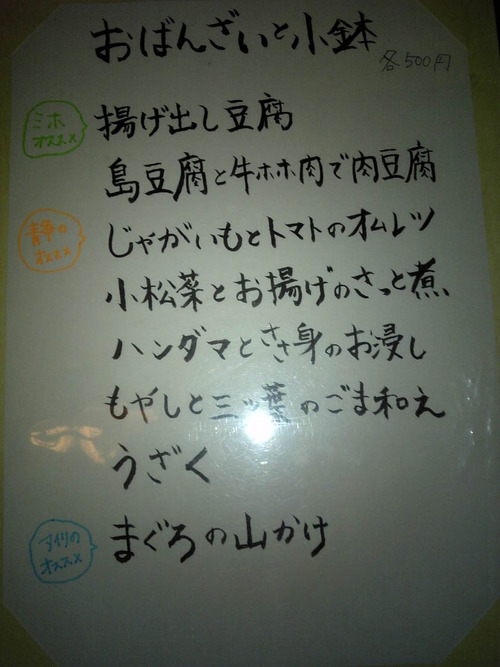 おばんざいと小鉢
各500円
ミホ
オススメ
揚げ出し豆腐
島豆腐と牛ホホ肉で肉豆腐
オススメ
じゃがいもとトマトのオムレツ
小松菜とお揚げのさっと煮
ハンダマとささ身のお浸し
もやしと三ッ葉のごま和え
うざく
アイリの
オススメ
まぐろの山かけ